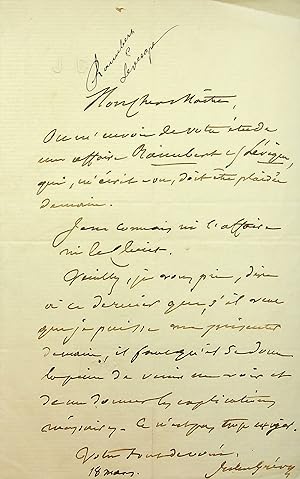 Raimbert
c
Levesque
Mon cher Maître,
On m'envoie de votre étude
une affaire Raimbert c/ Lévêque,
qui, m'écrit-on, doit être plaidée
demain.
Je ne connais ni l'affaire
ni le client.
Veuillez, je vous prie, dire
à ce dernier que, s'il veut
que je puisse me présenter
demain, il faut qu'il se donne
la peine de venir me voir et
de me donner les explications
nécessaires. Ce n'est pas trop exiger.
Votre tout dévoué.
18 mars. Jules Grévy